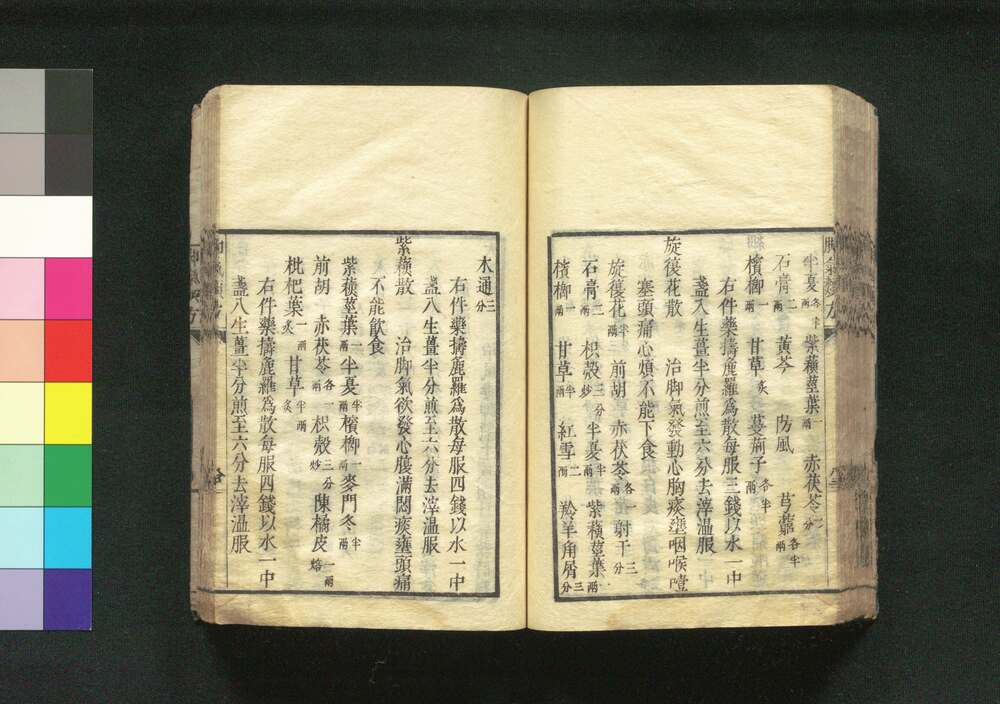 半夏各半兩 紫蘓莖葉一兩 赤茯苓三分
石膏二兩 黃芩 防風 芎藭各半兩
檳榔一兩 甘草炙 蔓荊子各半兩
右件藥擣麁羅為散每服三錢以水一中
盞入生薑半分煎至六分去滓温服
旋復花散 治脚氣發動心胸痰壅咽喉噎
塞頭痛心煩不能下食
旋復花半兩 前胡 赤茯苓各一兩 射干三分
石膏二兩 枳殼三分炒 半夏半兩 紫蘓莖葉一兩
檳榔一兩 甘草半兩 紅雪二兩 羚羊角屑三分
木通三分
右件藥擣麁羅為散每服四錢以水一中
盞入生薑半分煎至六分去滓温服
紫蘓散 治脚氣欲發心腹滿悶痰壅頭痛
不能飲食
紫蘓莖葉一兩 半夏半兩 檳榔一兩 麥門冬半兩
前胡 赤茯苓各一兩 枳殼三分炒 陳橘皮一兩焙
枇杷葉一兩炙 甘草半兩炙
右件藥擣麁羅為散每服四錢以水一中
盞入生薑半分煎至六分去滓温服